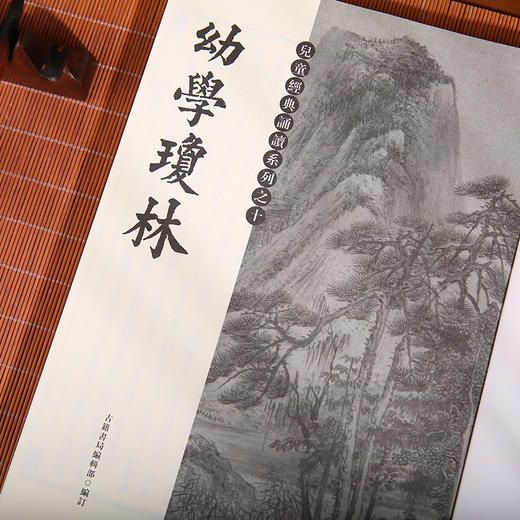 幼學瓊林
兒童經典誦讀系列之十
古籍書局編輯部◎編訂